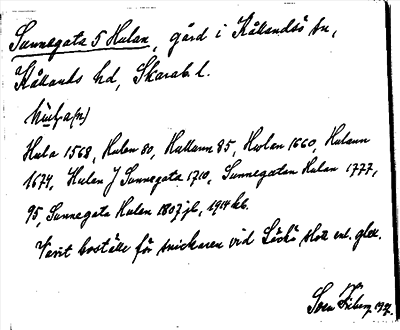 Sunnegata 5 Hulan, gård i Kållandsö sn,
Kållands hd, Skarab. l.
Hula 1568, Hulen 80, Hullann 85, Hwlen 1660, Hulann
1674, Hulan J Sunnegata 1710, Sunnegatan Hulan 1777,
95, Sunnegata Hulan 1807 jb, 1914 kb.
Varit boställe för snickaren vid Läckö slott enl. glex.